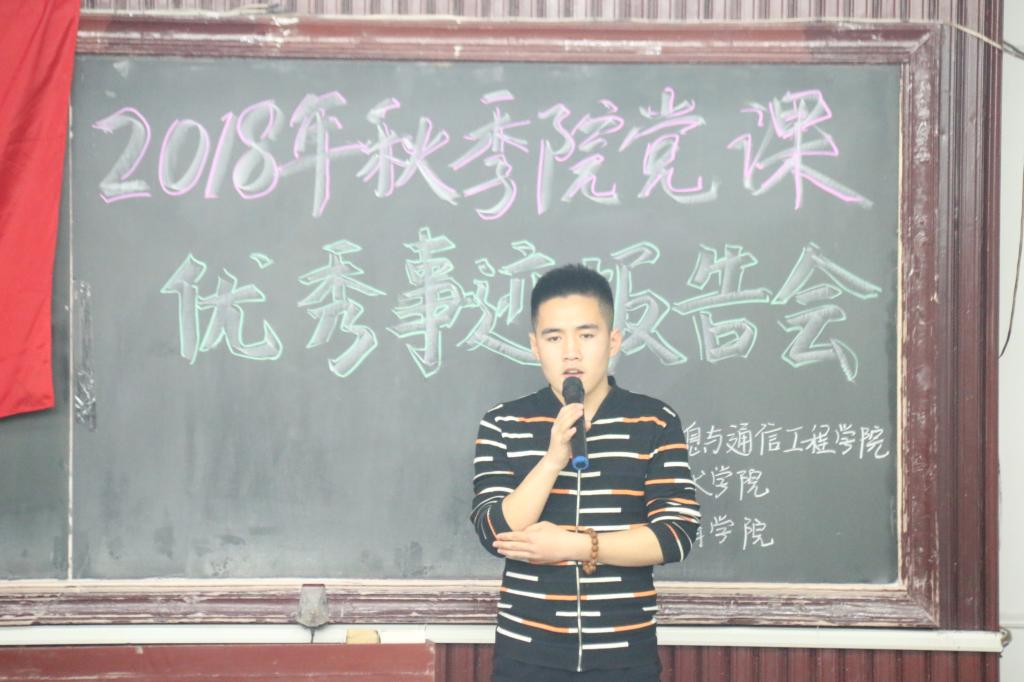 2018年秋季院党课
优秀事迹报告会
息与通信工程学院
学院
学院